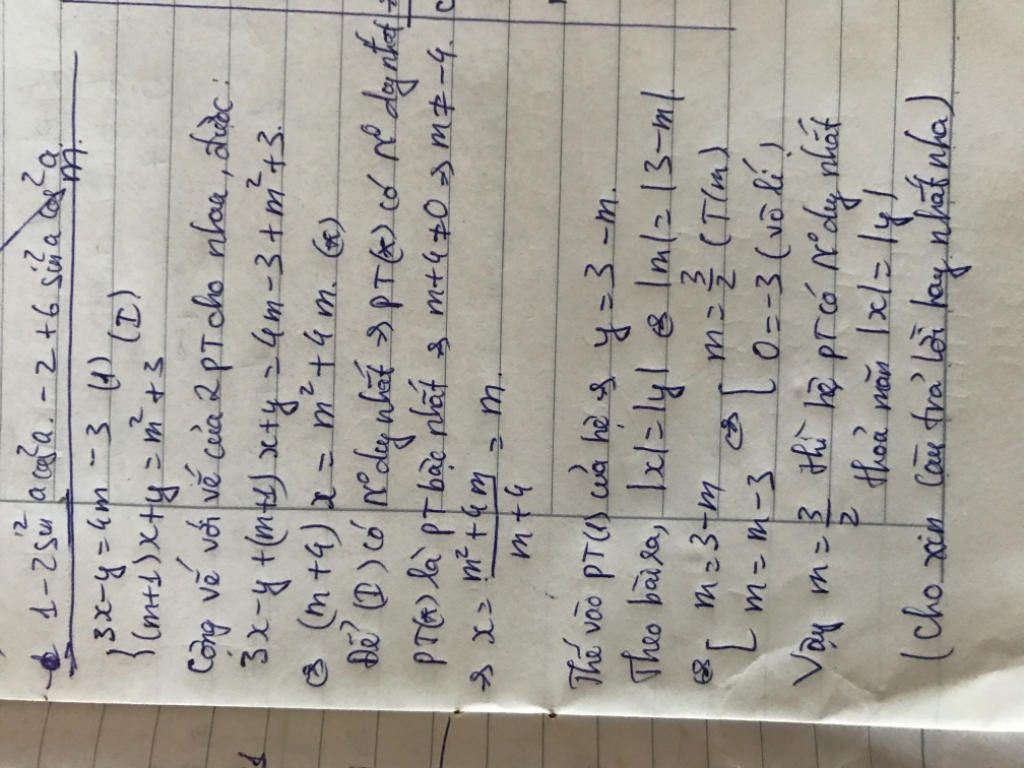 1 - 2 sin² a cos² a - 2 + 6 sin² a cos² a
{ 3x - y = 4m - 3 (1)
{ (m+1)x + y = m² + 3 (I)
Cộng vế với vế của 2 PT cho nhau, được:
3x - y + (m+1)x + y = 4m - 3 + m² + 3.
⇔ (m+4)x = m² + 4m. (*)
Để (I) có N° duy nhất ⇒ PT(*) có N° duy nhất ⇒
PT(*) là PT bậc nhất ⇒ m+4 ≠ 0 ⇒ m ≠ -4.
⇒ x = (m² + 4m)/(m + 4) = m.
Thế vào PT(1) của hệ ⇒ y = 3 - m.
Theo bài ra, |x| = |y| ⇔ |m| = |3 - m|
⇔ [ m = 3 - m ⇔ [ m = 3/2 (T(m)
[ m = m - 3 [ 0 = -3 (vô lí)
Vậy m = 3/2 thì hệ PT có N° duy nhất
thoả mãn |x| = |y|
(cho xin câu trả lời hay nhất nha)